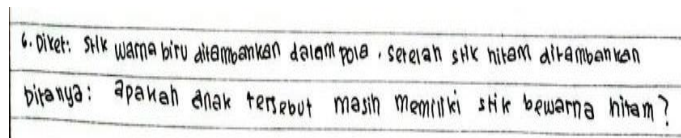 6. Diket: Stik warna biru ditambankan dalam pola, setelah stik hitam ditambankan
Ditanya: apakah anak tersebut masih memiliki stik bewarna hitam?